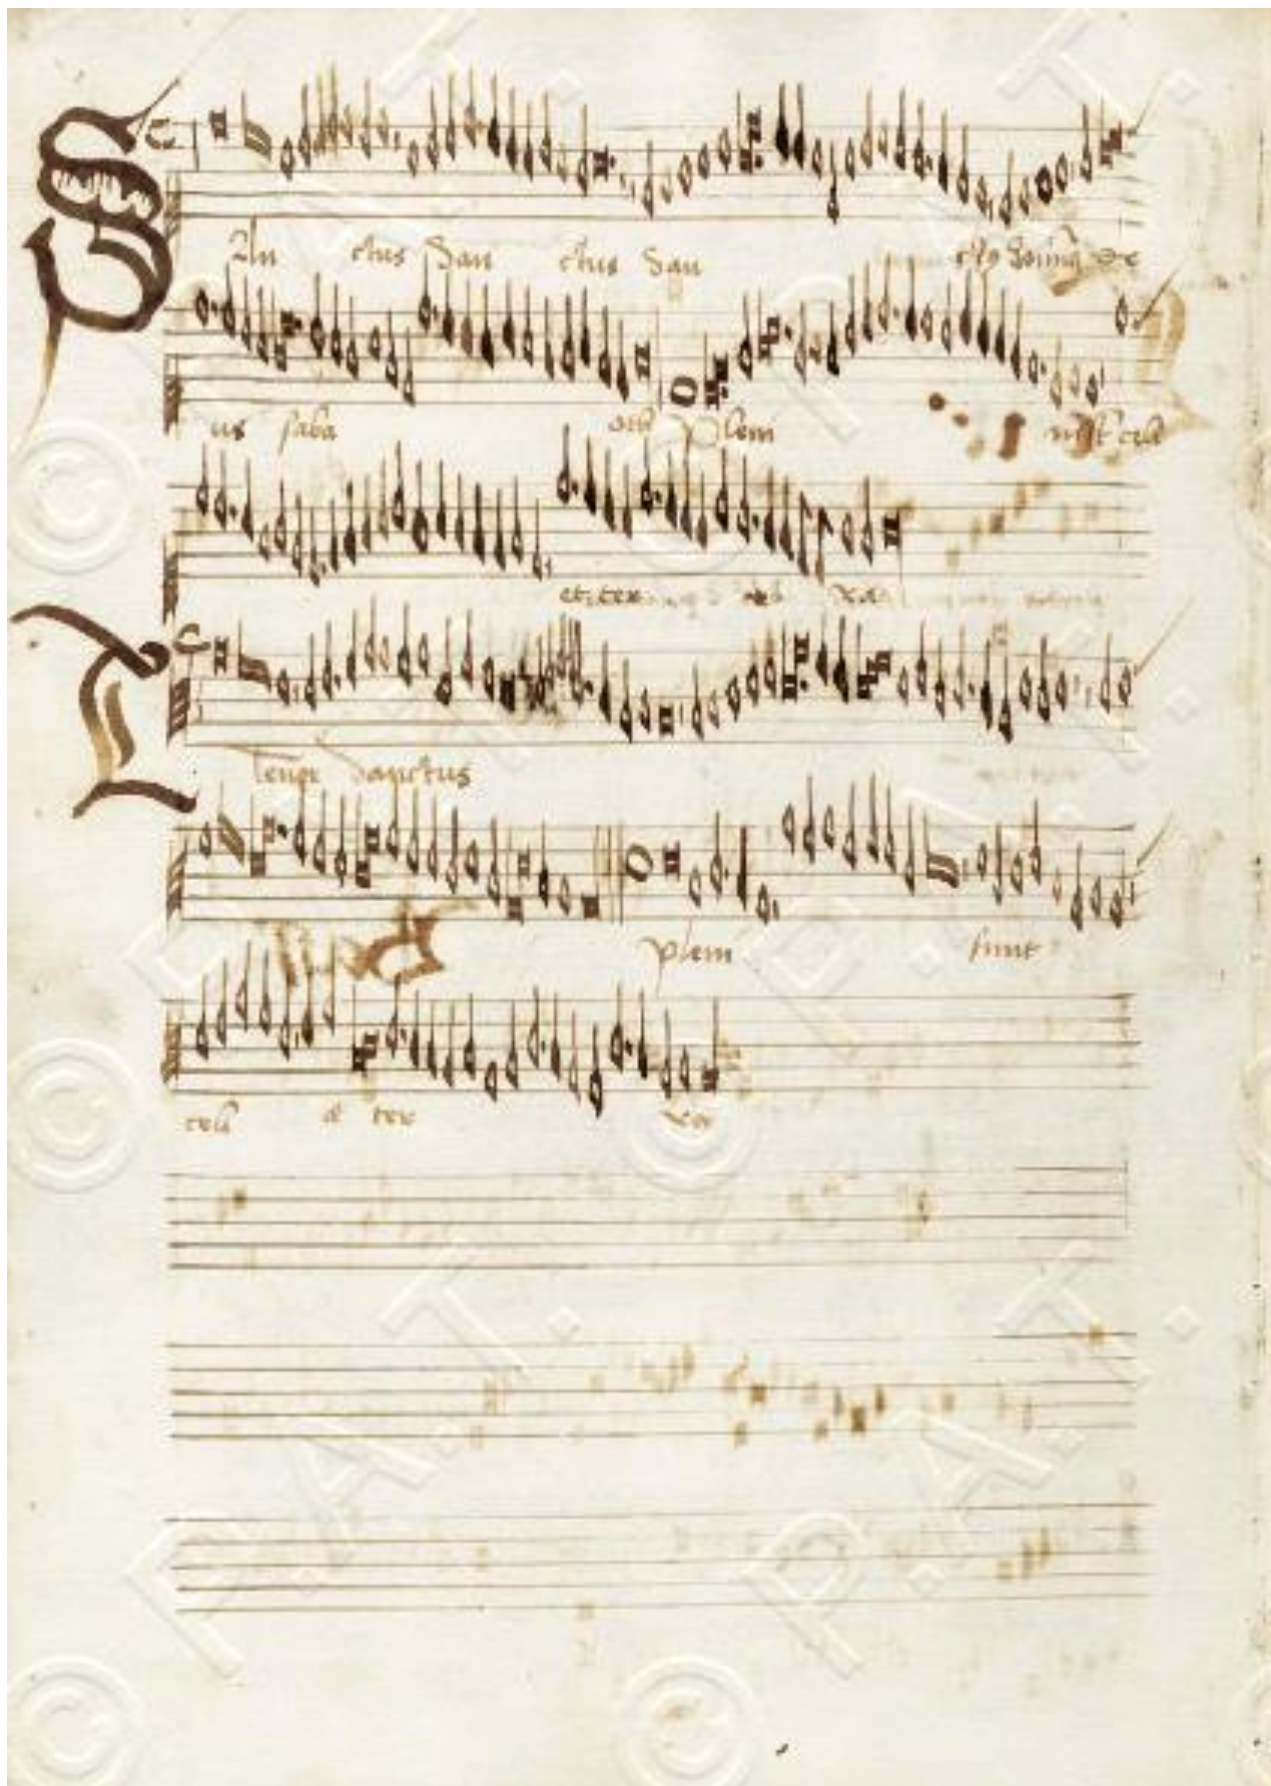 San ctus San ctus San ctus domi de
us saba oth plem sunt celi
et ter ra
Tenor Sanctus
plem sunt
celi et ter ra